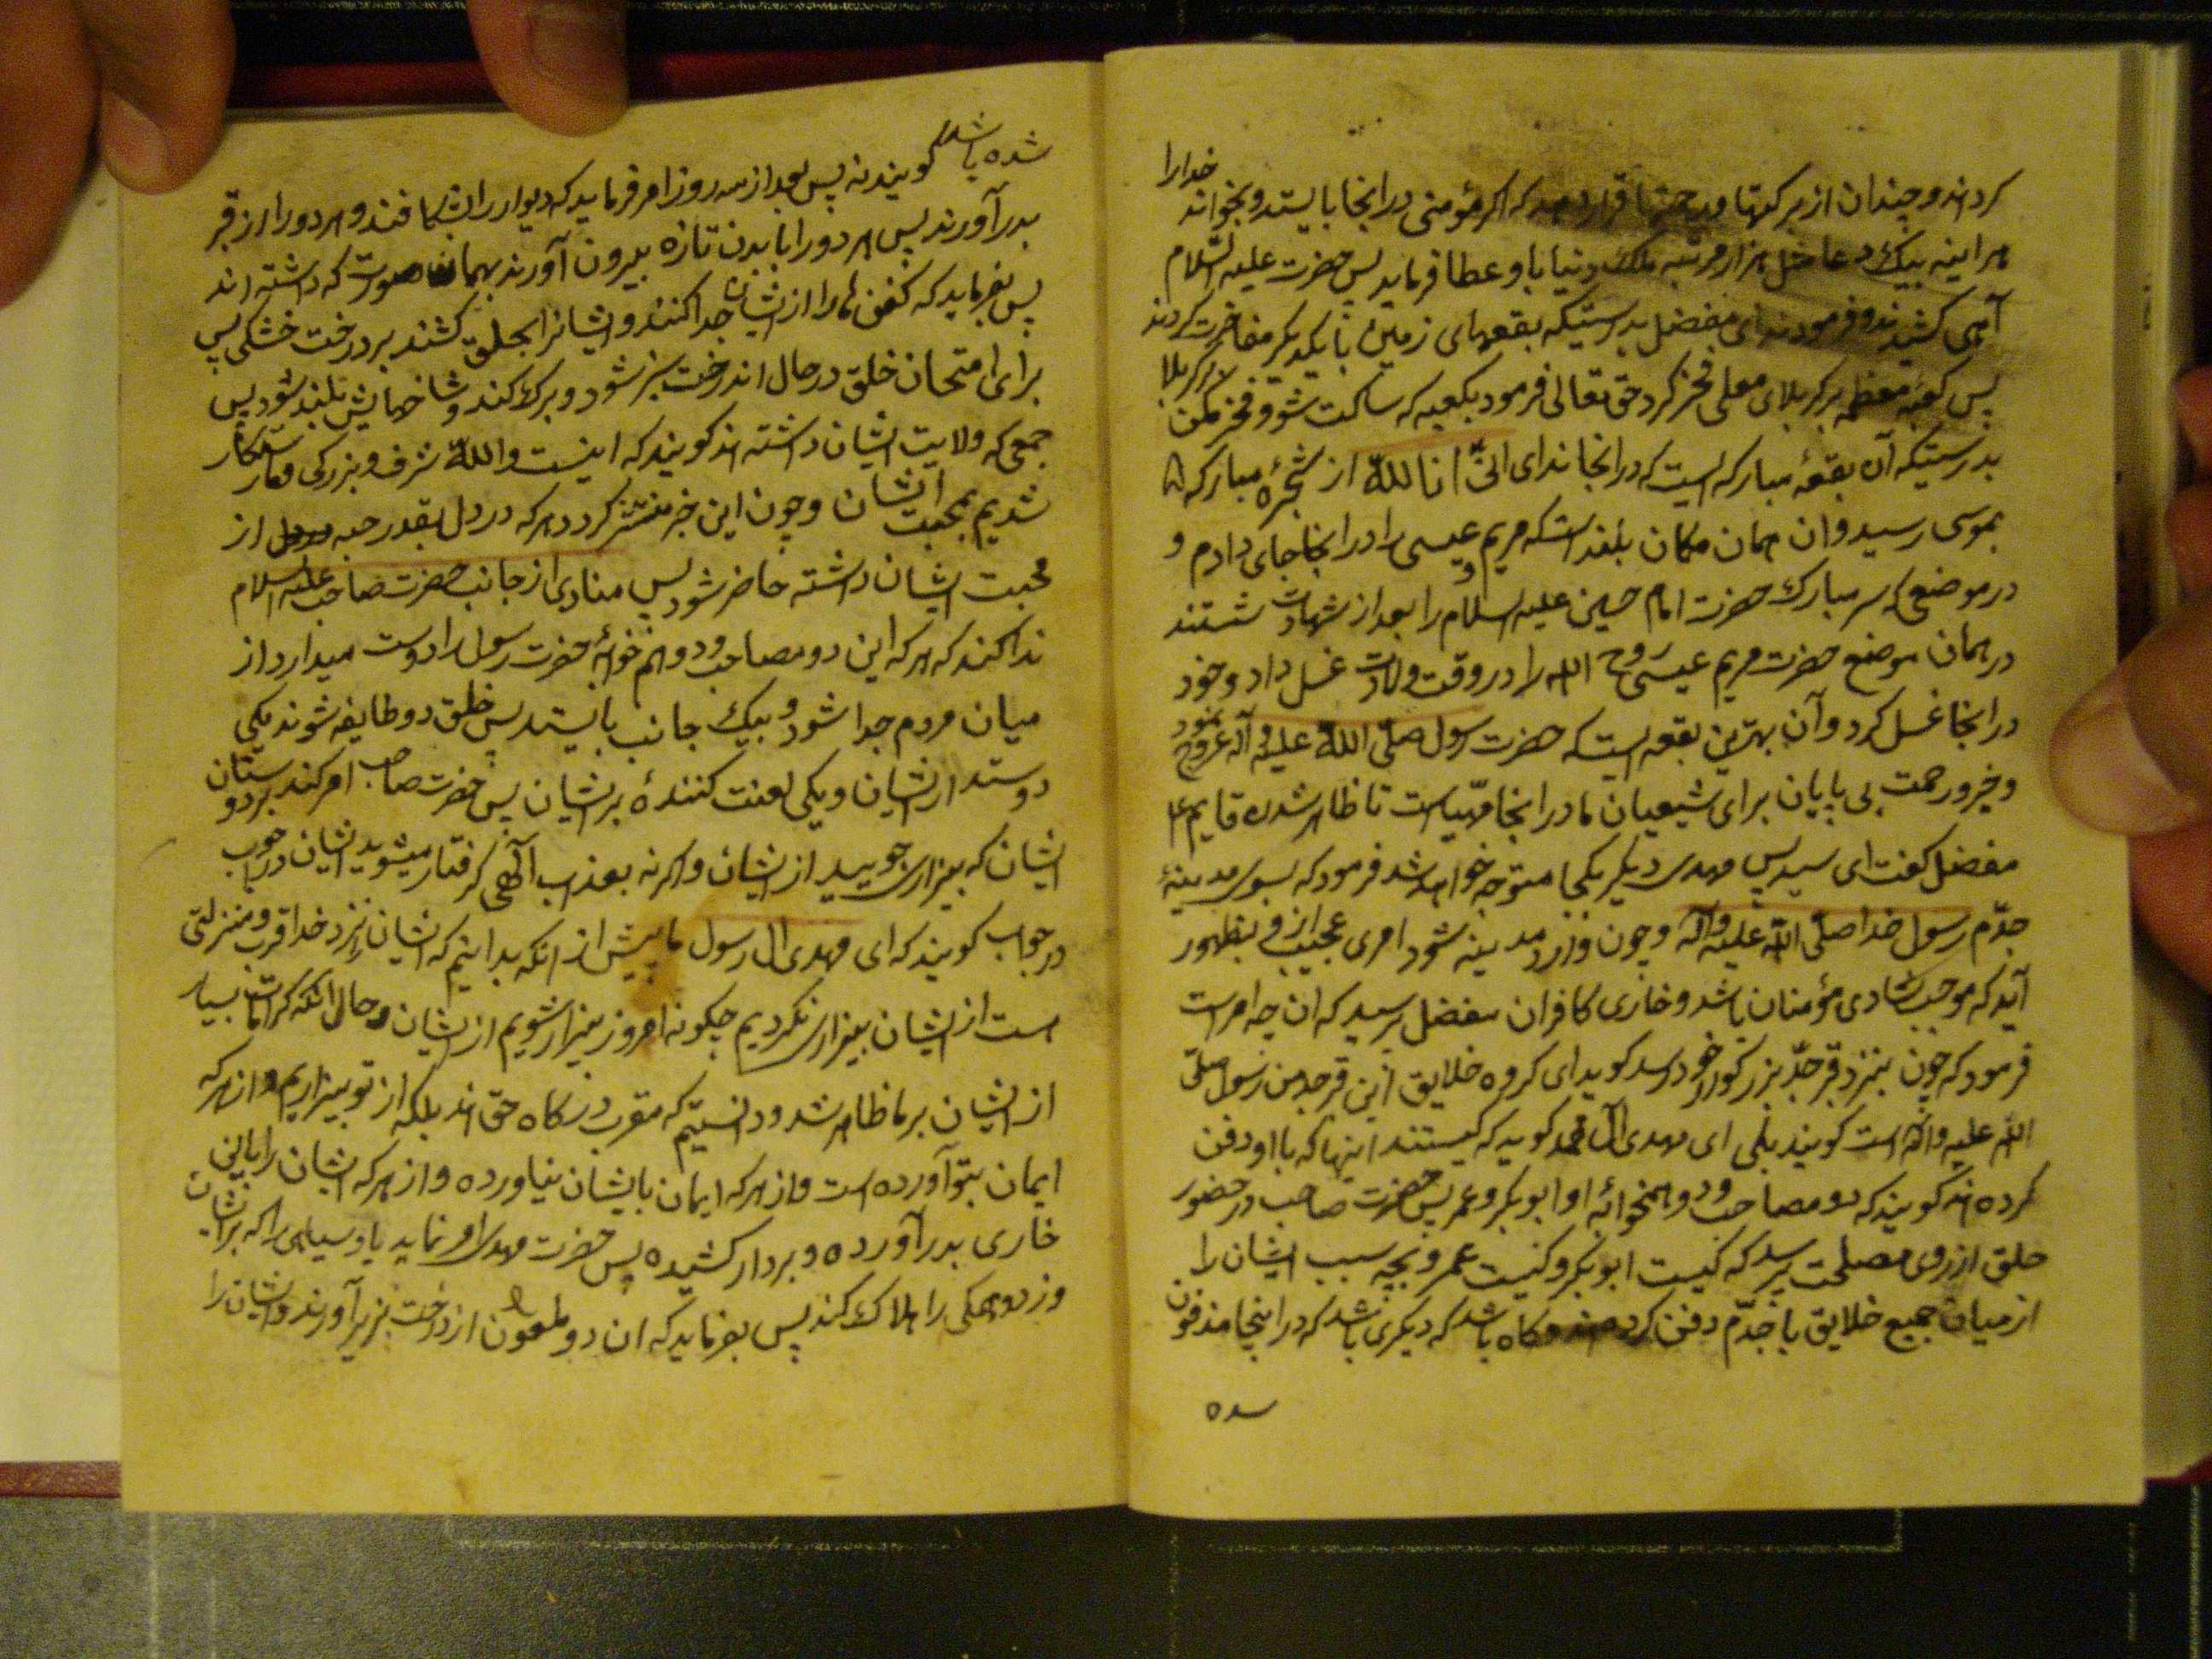 کردند و چندان از برکتها و رحمتها قرار دهد که اکر مؤمنی در انجا بایستد و بخواند خدارا
هر اینه بیک دعا مثل هزار مرتبه ملک دنیا باو عطا فرماید پس حضرت علیه السّلام
آهی کشیدند و فرمودند ای مفضل بدرستیکه بقعهای زمین با یکدیکر مفاخرت کردند
پس کعبه معظمه بر کربلای معلی فخر کرد حق تعالی فرمود بکعبه که ساکت شو و فخر مکن بر کربلا
بدرستیکه آن بقعهٔ مبارکه است که در انجا ندای انّی انا اللّه از شجرهٔ مبارکه
بموسی رسید و ان همان مکان بلند است که مریم و عیسی را در انجا جای دادم و
در موضعی که سر مبارک حضرت امام حسین علیه السلام را بعد از شهادت شستند
در همان موضع حضرت مریم عیسی روح الله را در وقت ولادت غسل داد و خود
در انجا غسل کرد و آن بهترین بقعه ایست که حضرت رسول صلّی اللّه علیه و آله عروج نمود
و خیر و رحمت بی پایان برای شیعیان ما در انجا مهیّاست تا ظاهر شدن قایم ع
مفضل کفت ای سید پس مهدی دیکر بکجا متوجه خواهد شد فرمود که بسوی مدینهٔ
جدّم رسول خدا صلّی اللّه علیه و آله و چون وارد مدینه شود امری عجیب از و بظهور
آید که موجب شادی مؤمنان باشد و خاری کافران مفضل پرسید که ان چه امر است
فرمود که چون بنزد قبر جدّ بزرکوار خود رسد کوید ای کروه خلایق این قبر جد من رسول صلّی
اللّه علیه و اله است کویند بلی ای مهدی آل محمد کوید که کیستند اینها که با او دفن
کرده اند کویند که دو مصاحب و دو همخوابهٔ او ابو بکر و عمر پس حضرت صاحب در حضور
خلق از روی مصلحت پرسد که کیست ابو بکر و کیست عمر و بچه سبب ایشان را
از میان جمیع خلایق با جدّم دفن کرده اند و کاه باشد که دیکری باشد که در اینجا مدفون
شده
شده باشد کویند نه پس بعد از سه روز امر فرماید که دیوار را بشکافند و هر دو را از قبر
بدر آورند پس هر دو را با بدن تازه بیرون آورند بهمان صورت که داشته اند
پس بفرماید که کفن ها را از ایشان جدا کنند و ایشانرا بحلق کشند بر درخت خشکی پس
برای امتحان خلق در حال اندرخت سبز شود و برک کند و شاخهایش بلند شود پس
جمعی که ولایت ایشان داشته اند کویند که اینست واللّه شرف و بزرکی و ما رستکار
شدیم بمحبت ایشان و چون این خبر منتشر کردد هر که در دل بقدر حبه از
محبت ایشان داشته حاضر شود پس منادی از جانب حضرت صاحب علیه السلام
ندا کند که هر که این دو مصاحب و دو هم خوابهٔ حضرت رسول را دوست میدارد از
میان مردم جدا شود و بیک جانب بایستد پس خلق دو طایفه شوند یکی
دوستدار ایشان و یکی لعنت کنندهٔ بر ایشان پس حضرت صاحب امر کند بر دوستان
ایشان که بیزاری جویید از ایشان و اکر نه بعذاب آلهی کرفتار میشوید ایشان در جواب
در جواب کویند که ای مهدی ال رسول ما پیش از انکه بدانیم که ایشان را نزد خدا قرب و منزلتی
است از ایشان بیزاری نکردیم چکونه امروز بیزار شویم از ایشان و حال انکه کرامات بسیار
از ایشان بر ما ظاهر شد و دانستیم که مقرب درکاه حق اند بلکه از تو بیزاریم و از هر که
ایمان بتو آورده است و از هر که ایمان بایشان نیاورده و از هر که ایشان را باین
خاری بدر آورده و بر دار کشیده پس حضرت مهدی امر نماید باد سیاهی را که بر ایشان
وزد و همکی را هلاک کند پس بفرماید که ان دو ملعون از درخت بزیر آورند و ایشان را